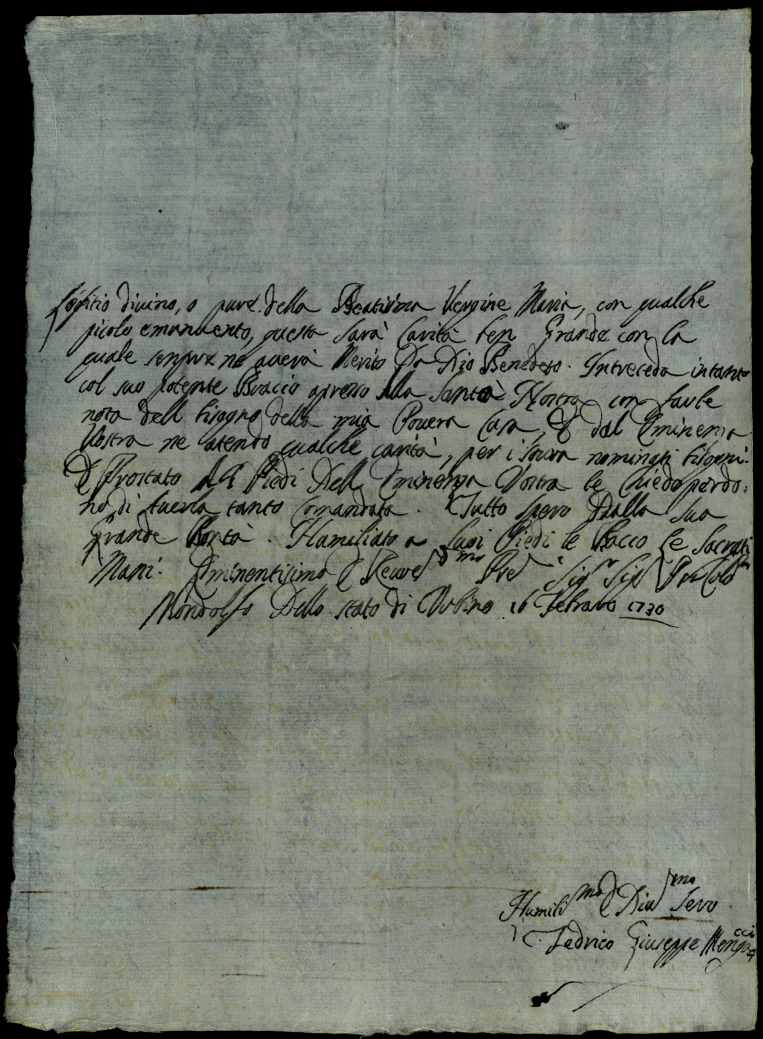 l'ofitio divino, o pure della Beatissima Vergine Maria, con qualche
picolo emanuento, questa sarà Carità ben Grande con la
quale sempre ne averà Merito Da Dio Benedeto. Intreceda intanto
col suo potente Bracio apresso alla Santtà Nostra con farle
nota dell bisogno della mia Povera Casa, E dal Eminenza
Vostra ne atendo qualche carità, per i soura nominati bisogni.
E Prostato Ai Piedi Dell Eminenza Vostra le Chiedo perdo:
no di averla tanto Comandata. Tutto spero Dalla sua
Grande Bontà. Humiliato a suoi Piedi le Bacco le Sacrati
Mani. Eminentisimo E Reve mo Pre Sigr Sigr
Mondolfo Dello stato di Urbino 16 Febraro 1730
Humili mo E Diu mo Servo
Giuseppe